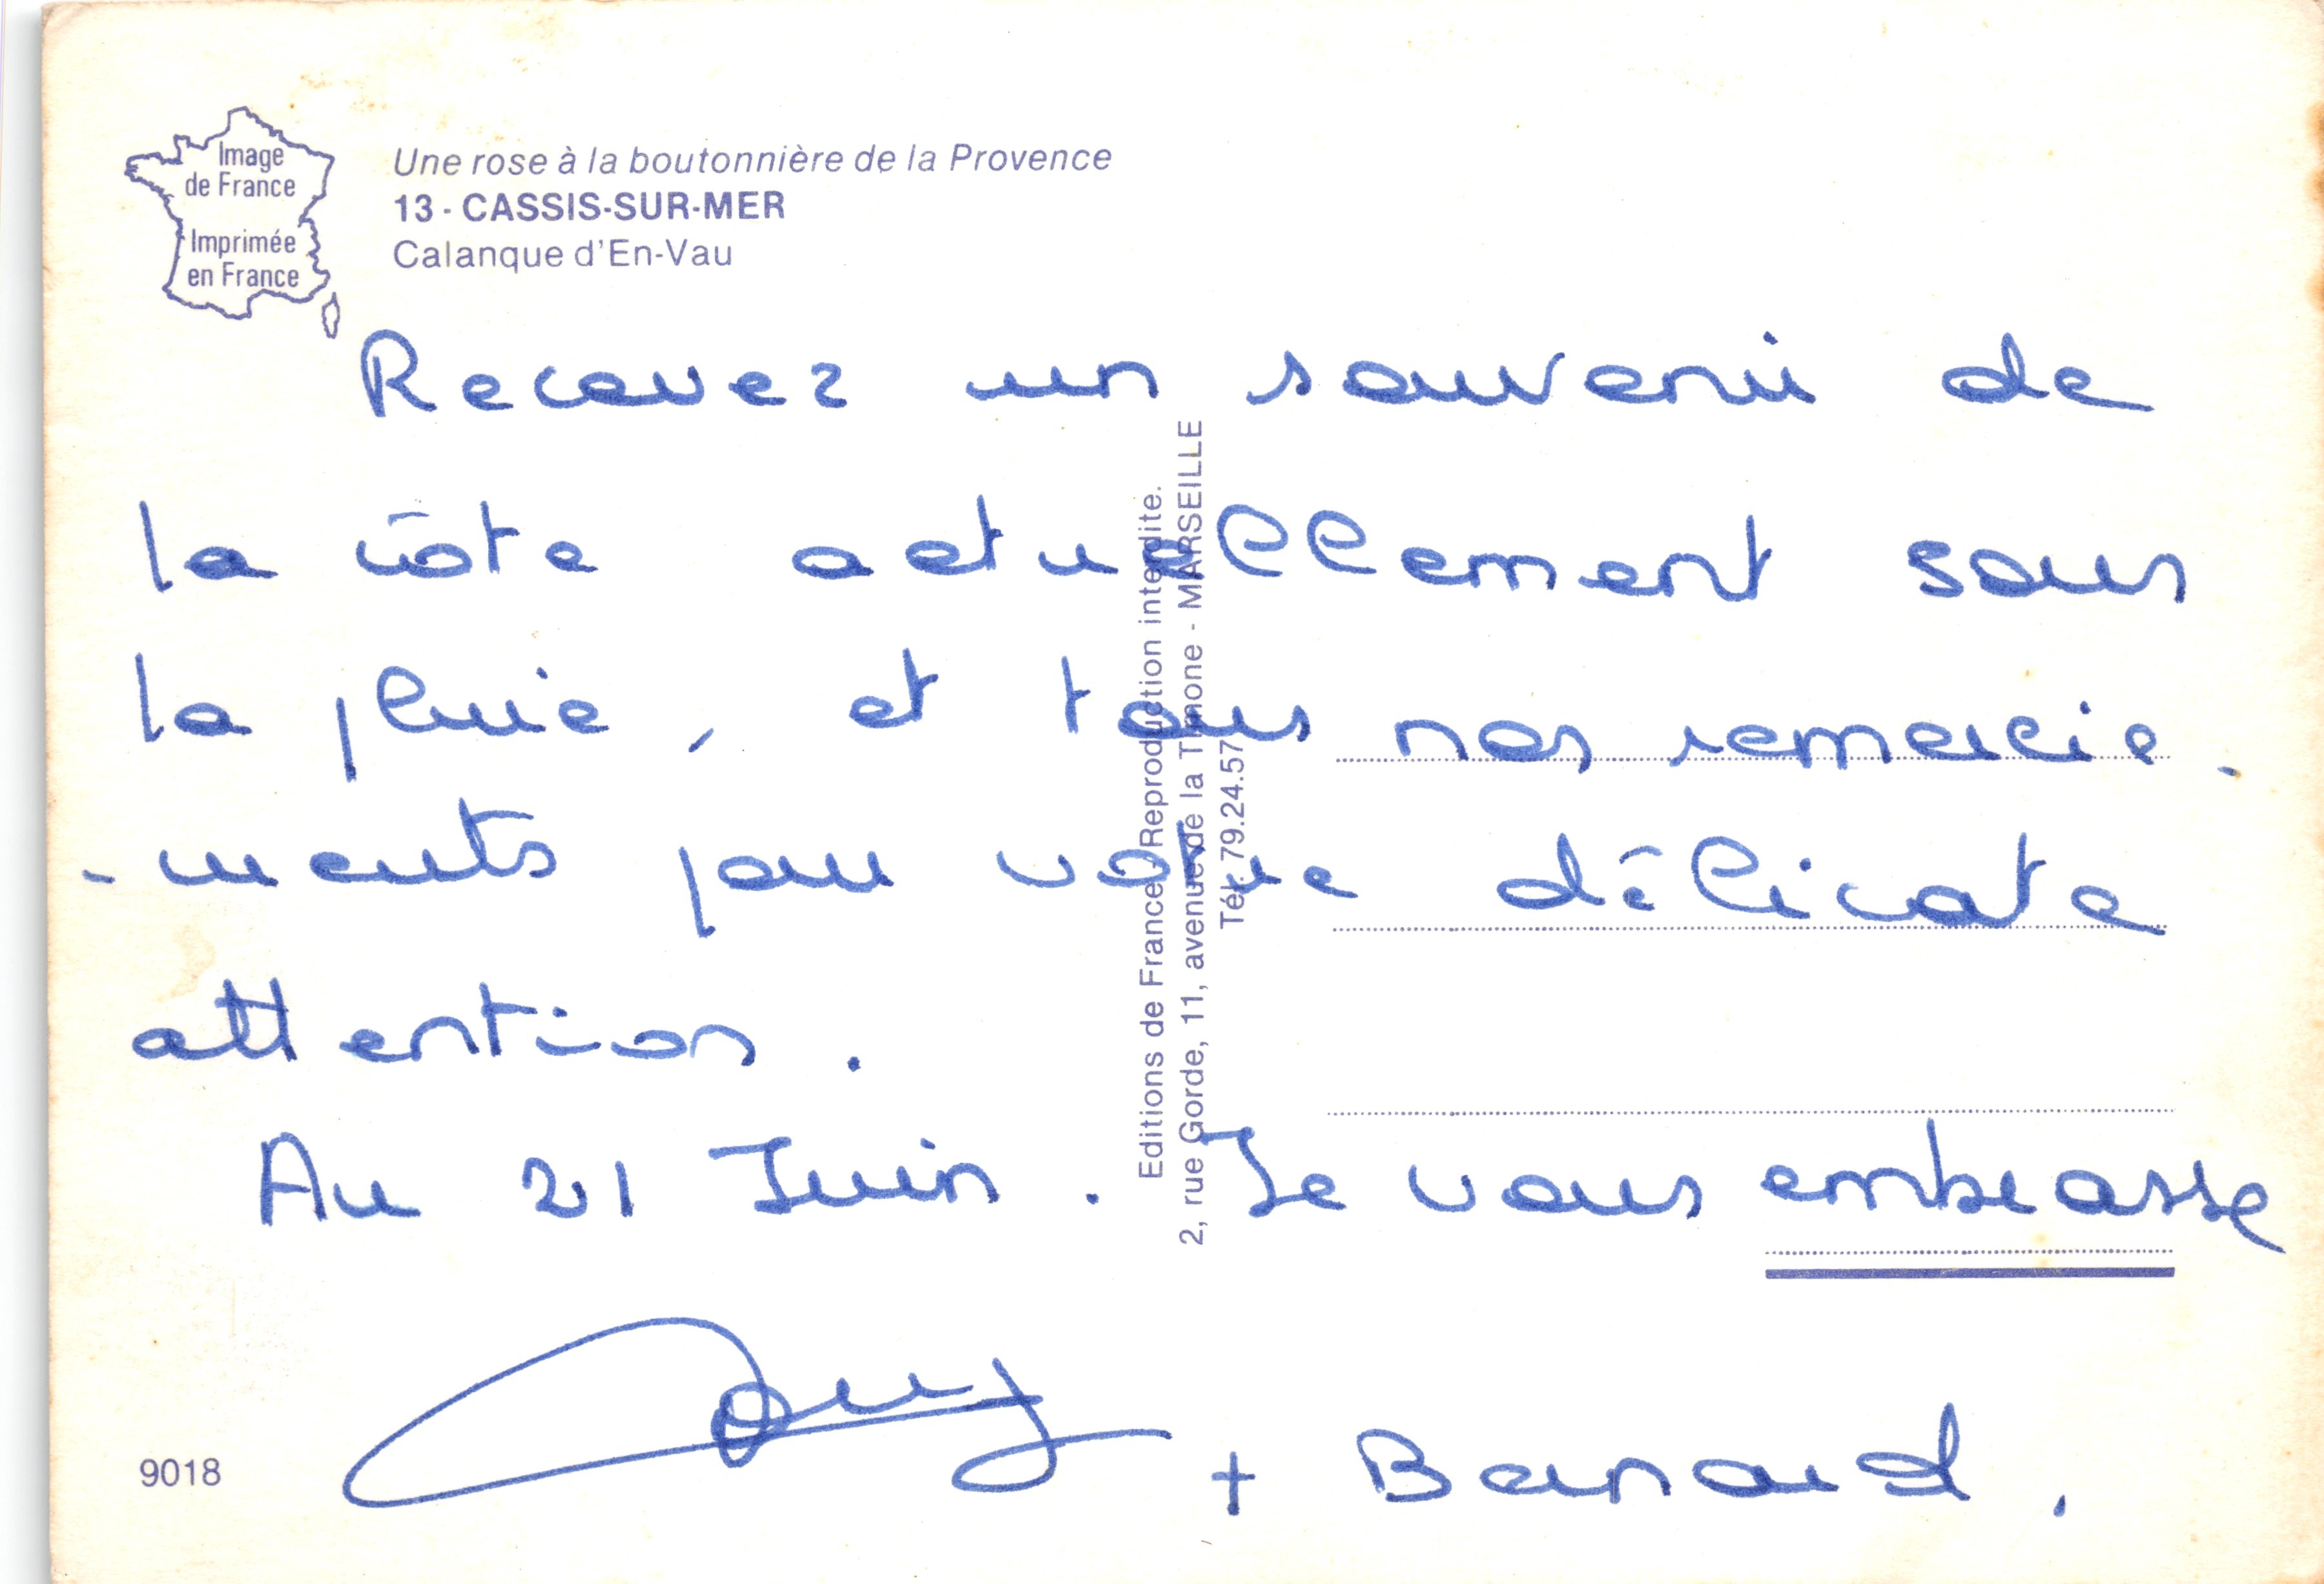 Image
de France
Imprimée
en France
Une rose à la boutonnière de la Provence
13 - CASSIS-SUR-MER
Calanque d'En-Vau
Recevez un souvenir de
la côte actuellement sous
la pluie, et tous nos remercie-
-ments pour votre délicate
attention.
Au 21 Juin. Je vous embrasse
+ Bernard.
9018
Editions de France - Reproduction interdite.
2, rue Gorde, 11, avenue de la Timone - MARSEILLE
Tél. 79.24.57